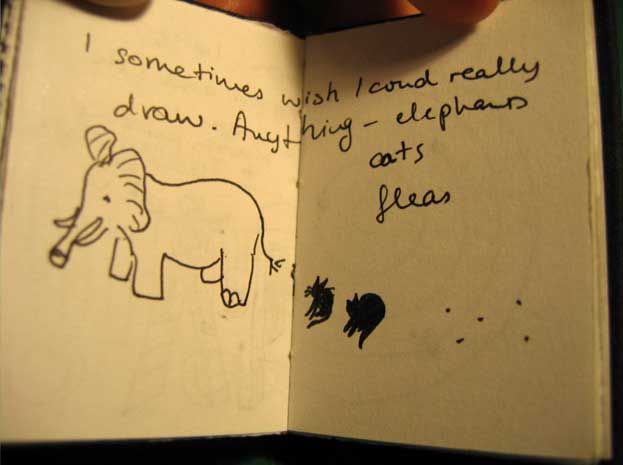 I sometimes wish I coud really
draw. Anything - elephants
cats
fleas